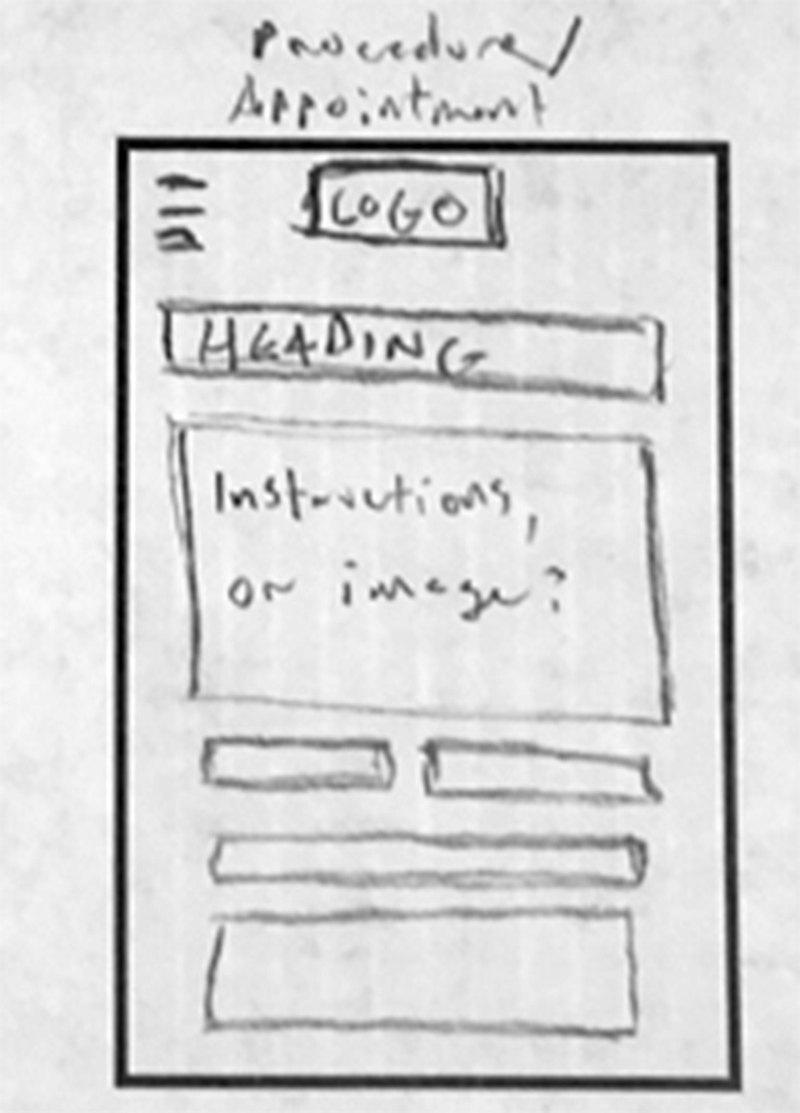 Procedure/
Appointment
LOGO
HEADING
Instructions,
or image?